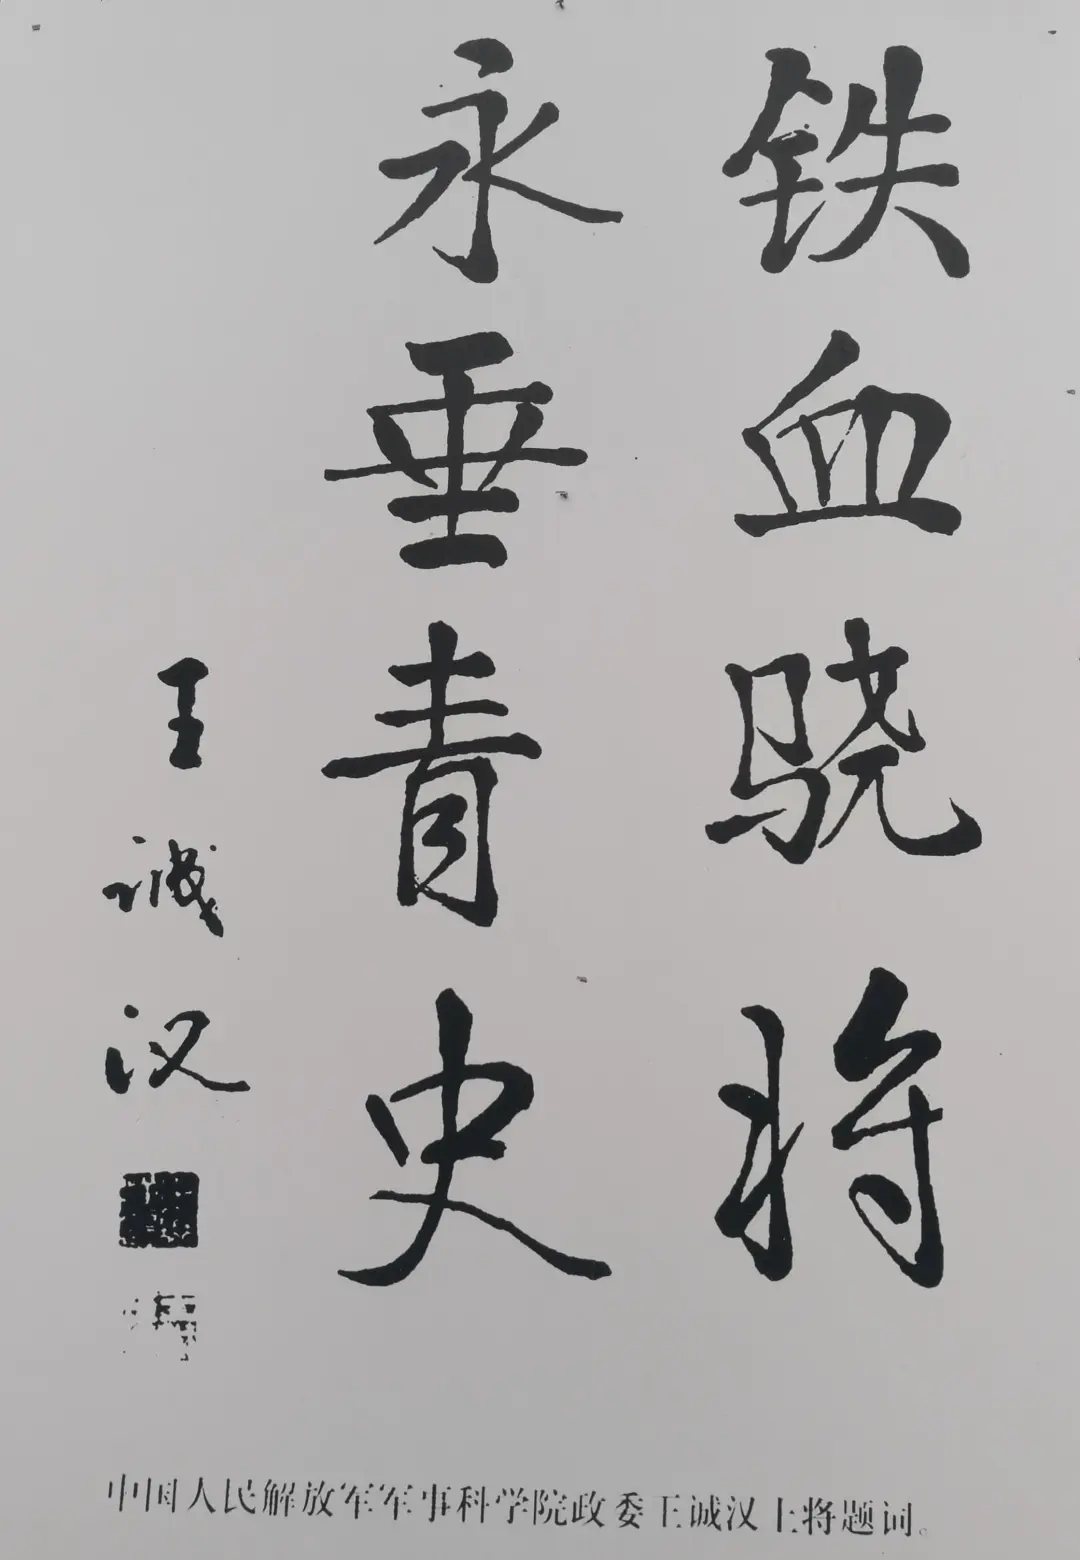 铁血骁将
永垂青史
王诚汉
中国人民解放军军事科学院政委王诚汉上将题词。